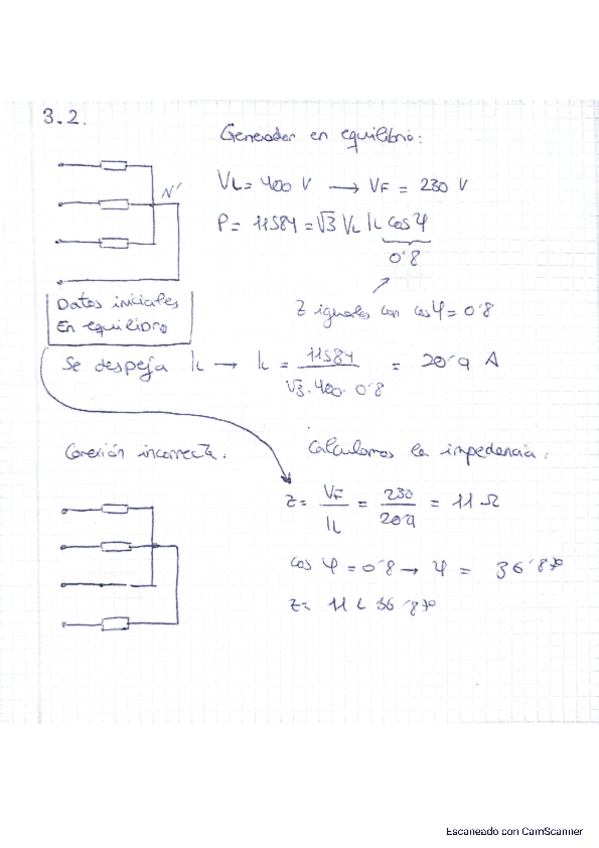 3.2.
Generador en equilibrio:
N'
VL = 400 V → VF = 230 V
P = 11584 = √3 VL IL cos φ
0'8
Datos iniciales
En equilibrio
Z iguales con cos φ = 0'8
Se despeja IL → IL = 11584 / √3·400·0'8 = 20'9 A
Conexión incorrecta.
Calculamos la impedancia:
Z = VF / IL = 230 / 20'9 = 11 Ω
cos φ = 0'8 → φ = 36'87º
Z = 11 ∠ 36'87º
Escaneado con CamScanner